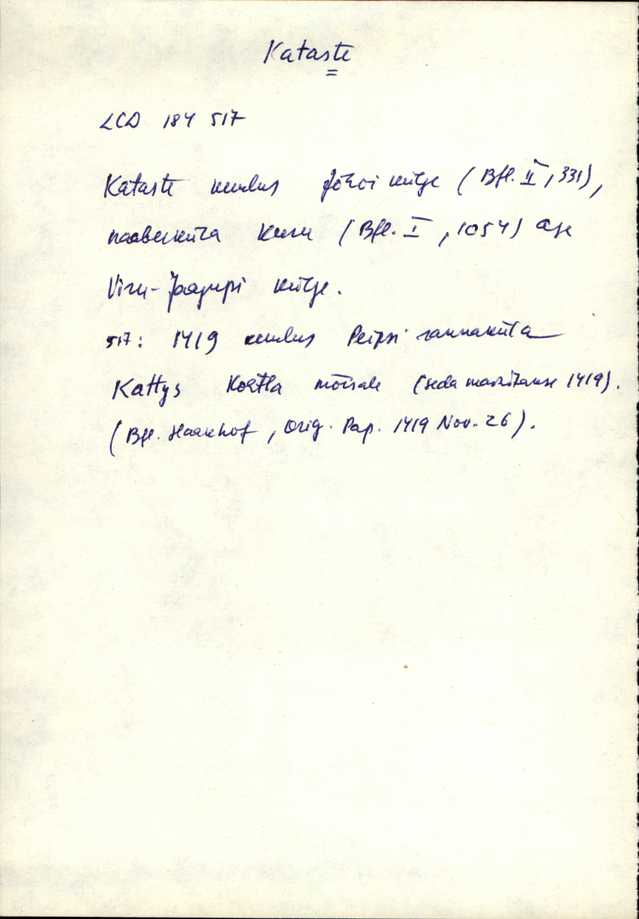 Kataste
LCD 184 517
Kataste kuulus Jõhvi külge (Bfl. II, 331),
naaberküla Kuru (Bfl. I, 1054) aga
Viru-Jaagupi külge.
517: 1419 kuulus Peipsi rannaküla
Kattys Kostla mõisale (seda mainitakse 1419).
(Bfl. Haakhof, Orig. Pap. 1419 Nov. 26).